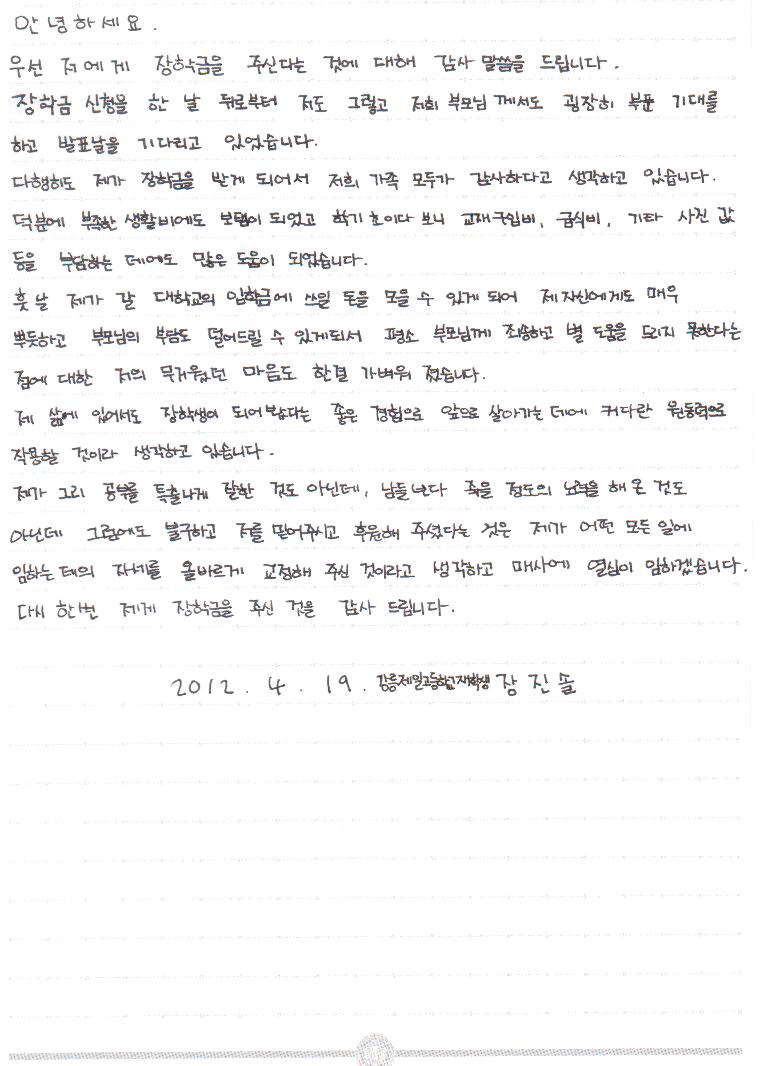 안녕하세요.
우선 저에게 장학금을 주신다는 것에 대해 감사 말씀을 드립니다.
장학금 신청을 한 날 뒤로부터 저도 그렇고 저희 부모님께서도 굉장히 부푼 기대를
하고 발표날을 기다리고 있었습니다.
다행히도 제가 장학금을 받게 되어서 저희 가족 모두가 감사하다고 생각하고 있습니다.
덕분에 부족한 생활비에도 보탬이 되었고 학기 초이다 보니 교재구입비, 급식비, 기타 사진 값
등을 부담하는 데에도 많은 도움이 되었습니다.
훗날 제가 갈 대학교의 입학금에 쓰일 돈을 모을 수 있게 되어 제 자신에게도 매우
뿌듯하고 부모님의 부담도 덜어드릴 수 있게되서 평소 부모님께 죄송하고 별 도움을 드리지 못한다는
점에 대한 저의 무거웠던 마음도 한결 가벼워 졌습니다.
제 삶에 있어서도 장학생이 되어 봤다는 좋은 경험으로 앞으로 살아가는 데에 커다란 원동력으로
작용할 것이라 생각하고 있습니다.
제가 그리 공부를 특출나게 잘한 것도 아닌데, 남들보다 죽을 정도의 노력을 해 온 것도
아닌데 그럼에도 불구하고 저를 믿어주시고 후원해 주셨다는 것은 제가 어떤 모든 일에
임하는 데의 자세를 올바르게 교정해 주신 것이라고 생각하고 매사에 열심이 임하겠습니다.
다시 한번 제게 장학금을 주신 것을 감사 드립니다.
2012. 4. 19. 강릉제일고등학교재학생 장진솔